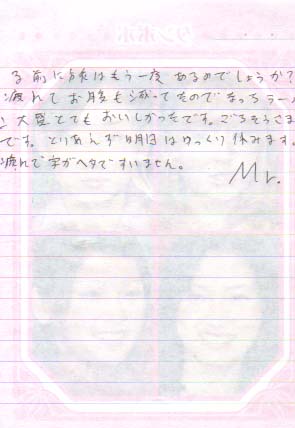 タンポポ
る前に旅はもう一度あるのでしょうか?
疲れてお腹も減ってたのでなっちラー
大盛とてもおいしかったです。ごちそうさま
です。とりあえず明日はゆっくり休みます。
疲れて字がヘタですいません。
Mr.